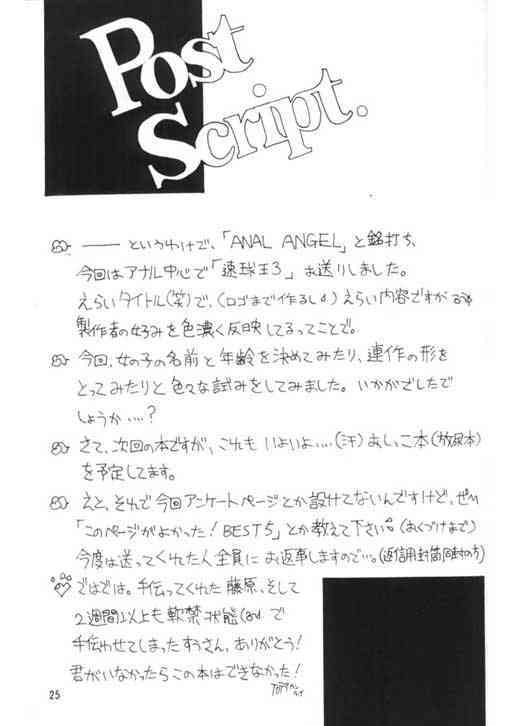 Post
Script.
—— というわけで、「ANAL ANGEL」と銘打ち、
今回はアナル中心で「速球王3」お送りしました。
えらいタイトル(笑)で、(ロゴまで作るし) えらい内容ですが
製作者の好みを色濃く反映してるってことで。
今回、女の子の名前と年齢を決めてみたり、連作の形を
とってみたりと色々な試みをしてみました。いかがでしたで
しょうか‥‥?
さて、次回の本ですが、これも いよいよ‥‥(汗) おしっこ本(放尿本)
を予定してます。
えと、それで今回アンケートページとか設けてないんですけど、ぜひ
「このページがよかった! BEST5」とか教えて下さい。(おくづけまで)
今度は送ってくれた人全員に お返事しますので…。(返信用封筒同封の方)
ではでは。手伝ってくれた 藤原、そして
2週間以上も軟禁状態 で
手伝わせてしまったすうさん、ありがとう!
君がいなかったらこの本はできなかった!
25